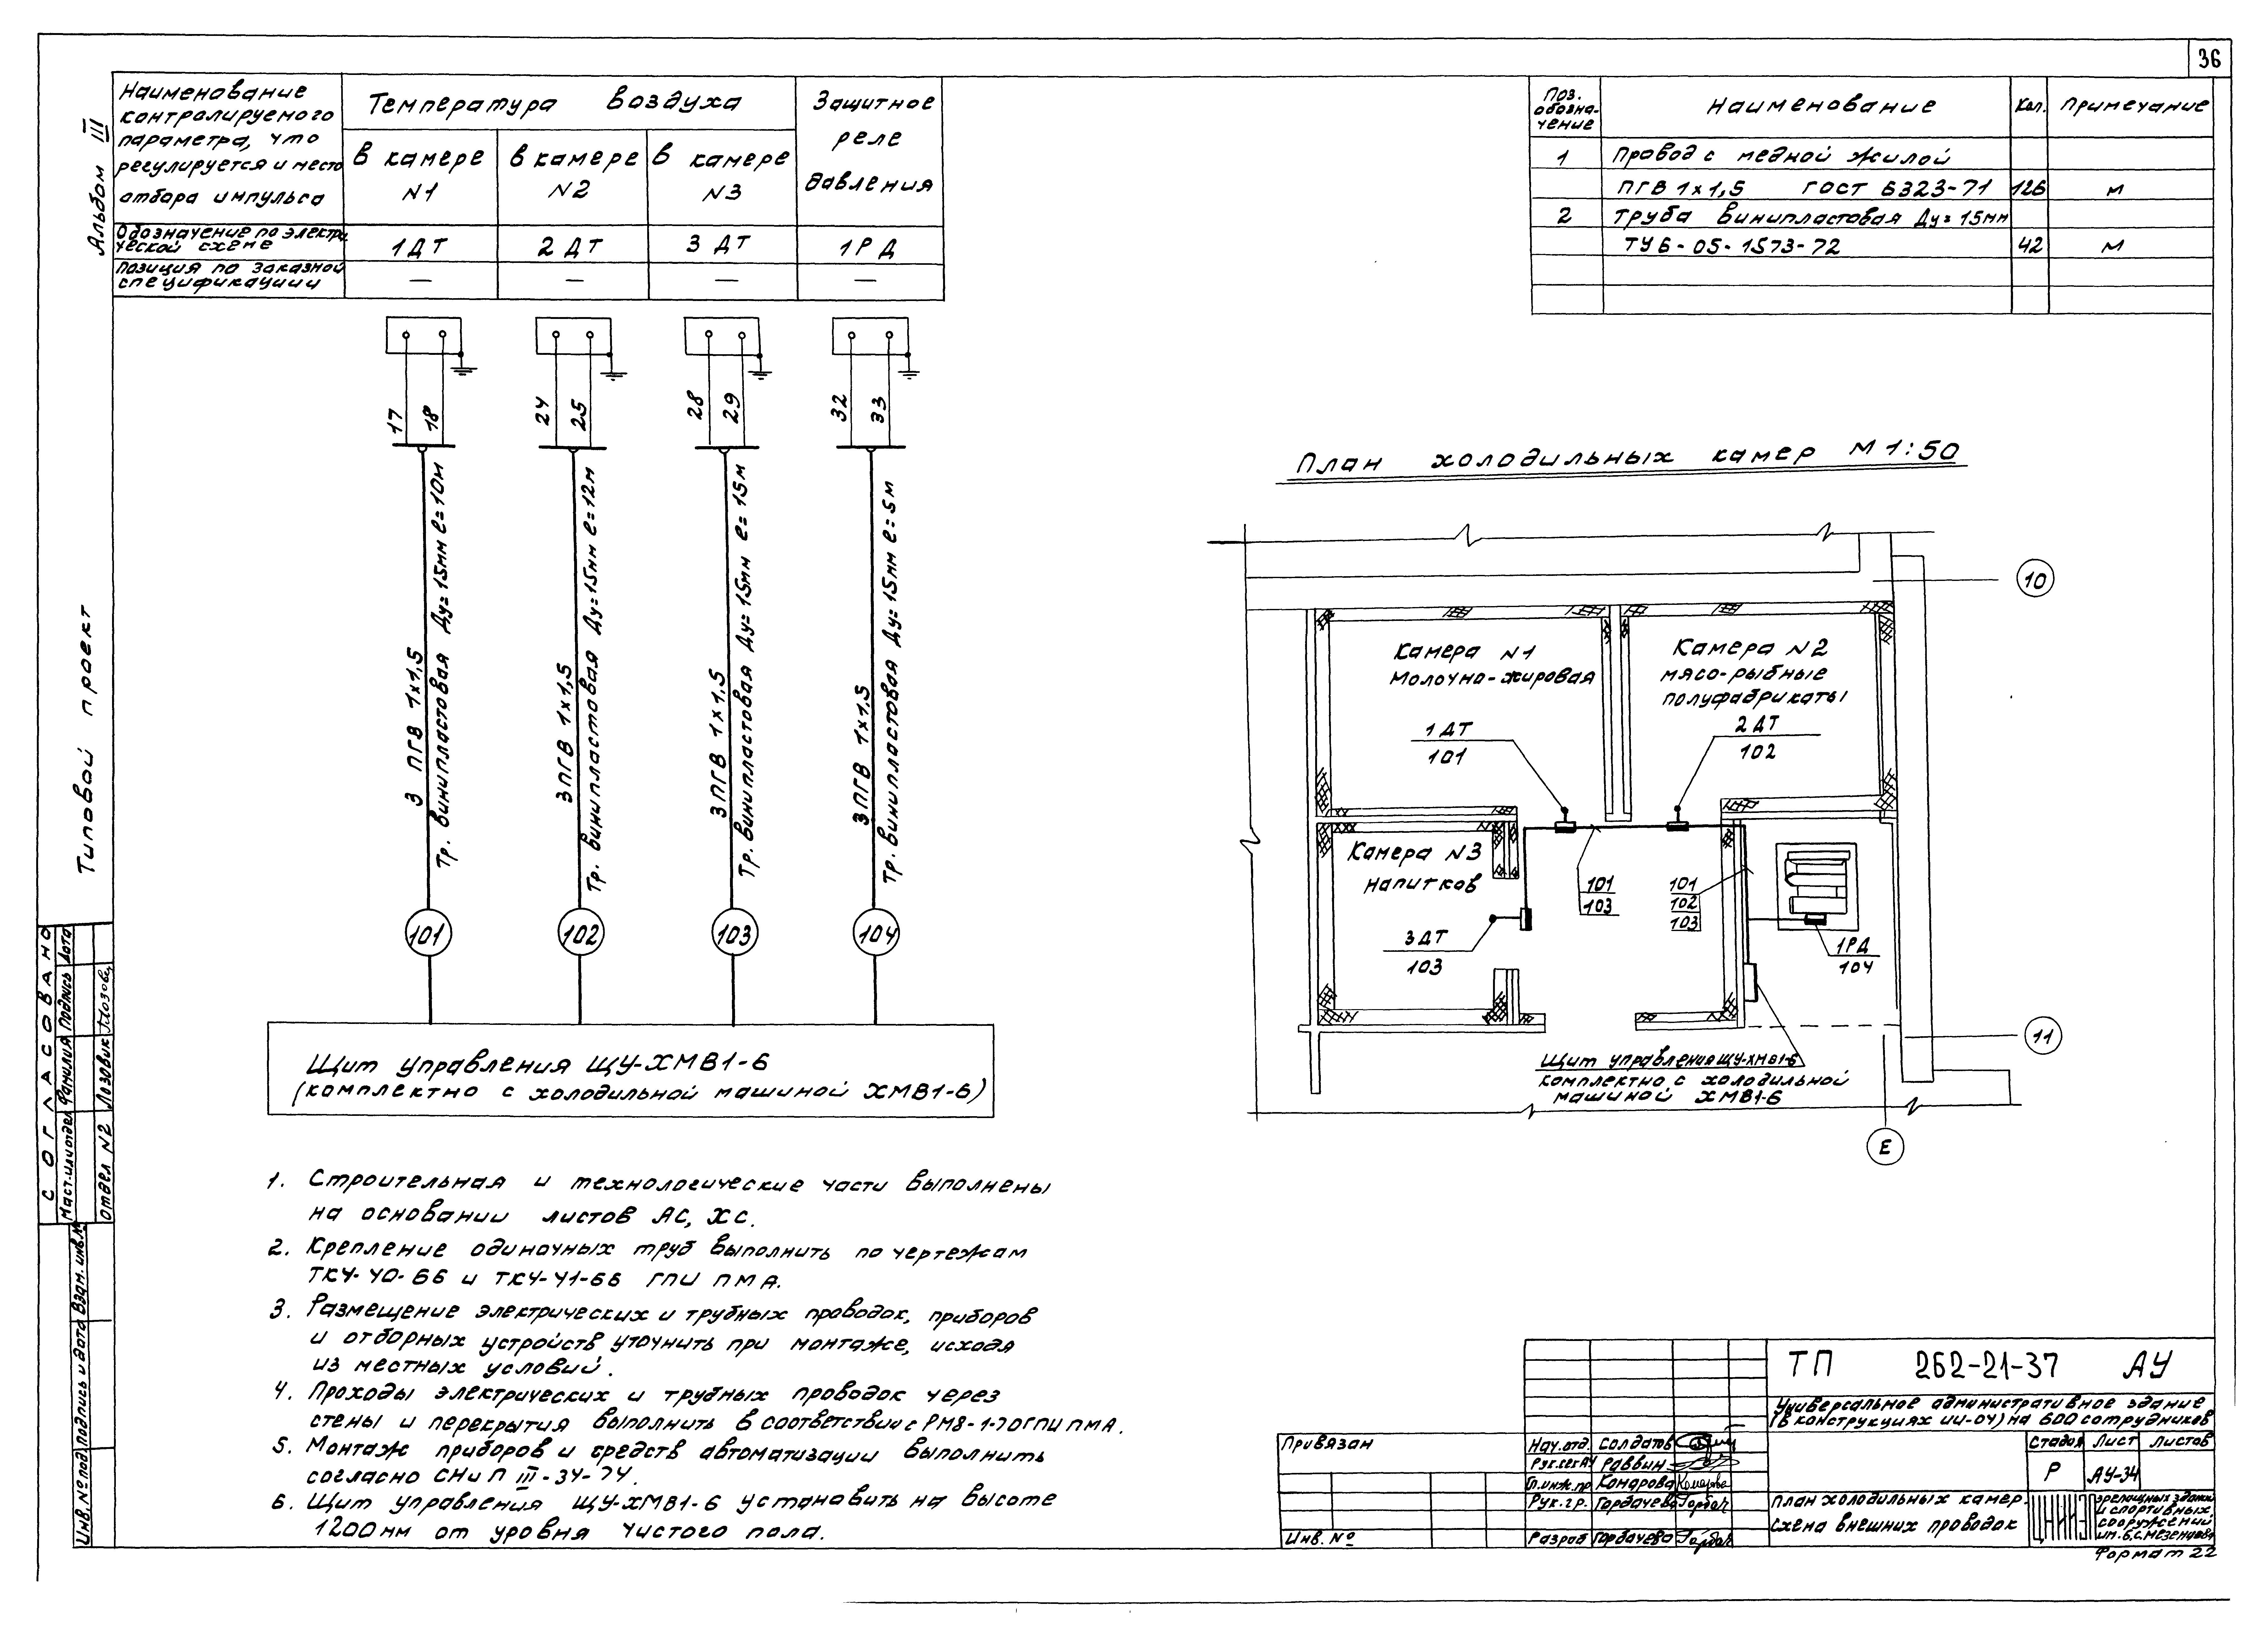 36
Альбом III
Типовой проект
Наименование
контролируемого
параметра, что
регулируется и место
отбора импульса
Температура воздуха
в камере
N1
в камере
N2
в камере
N3
Защитное
реле
давления
Обозначение по электри-
ческой схеме
1ДТ
2ДТ
3ДТ
1РД
Позиция по заказной
спецификации
—
—
—
—
17 18
24 25
28 29
32 33
3 ПГВ 1х1,5
Тр. винипластовая Ду=15мм е=10м
3 ПГВ 1х1,5
Тр. винипластовая Ду=15мм е=12м
3 ПГВ 1х1,5
Тр. винипластовая Ду=15мм е=15м
3 ПГВ 1х1,5
Тр. винипластовая Ду=15мм е=5м
101
102
103
104
Щит управления ЩУ-ХМВ1-6
(комплектно с холодильной машиной ХМВ1-6)
1. Строительная и технологические части выполнены
на основании листов АС, ХС.
2. Крепление одиночных труб выполнить по чертежам
ТКЧ-40-66 и ТКЧ-41-66 ГПИ ПМА.
3. Размещение электрических и трубных проводок, приборов
и отборных устройств уточнить при монтаже, исходя
из местных условий.
4. Проходы электрических и трубных проводок через
стены и перекрытия выполнить в соответствии с РМ8-1-70 ГПИ ПМА.
5. Монтаж приборов и средств автоматизации выполнить
согласно СНиП III-34-74.
6. Щит управления ЩУ-ХМВ1-6 установить на высоте
1200мм от уровня чистого пола.
Поз.
обозна-
чение
Наименование
Кол.
Примечание
1 Провод с медной жилой
ПГВ 1х1,5 ГОСТ 6323-71 126 м
2 Труба винипластовая Ду=15мм
ТУ6-05-1573-72 42 м
План холодильных камер М 1:50
10
Камера N1
молочно-жировая
Камера N2
мясо-рыбные
полуфабрикаты
1ДТ
101
2ДТ
102
Камера N3
напитков
101
103
101
102
103
3ДТ
103
1РД
104
11
Щит управления ЩУ-ХМВ1-6
комплектно с холодильной
машиной ХМВ1-6
Е
СОГЛАСОВАНО
Маст. или отдел Фамилия Подпись Дата
Отдел N2 Лозовик
Взам. инв. №
Подпись и дата
Инв. № подл.
Привязан
Инв. №
Нач. отд. Солдатов
Рук. сек АУ Раввин
Гл. инж. пр. Комарова
Рук. гр. Горбачева
Разраб Горбачева
ТП 262-21-37 АУ
Универсальное административное здание
(в конструкциях ИИ-04) на 600 сотрудников
Стадия Лист Листов
Р АУ-34
План холодильных камер.
Схема внешних проводок
ЦНИИЭП
зрелищных зданий
и спортивных
сооружений
им. Б.С. Мезенцева
Формат 22